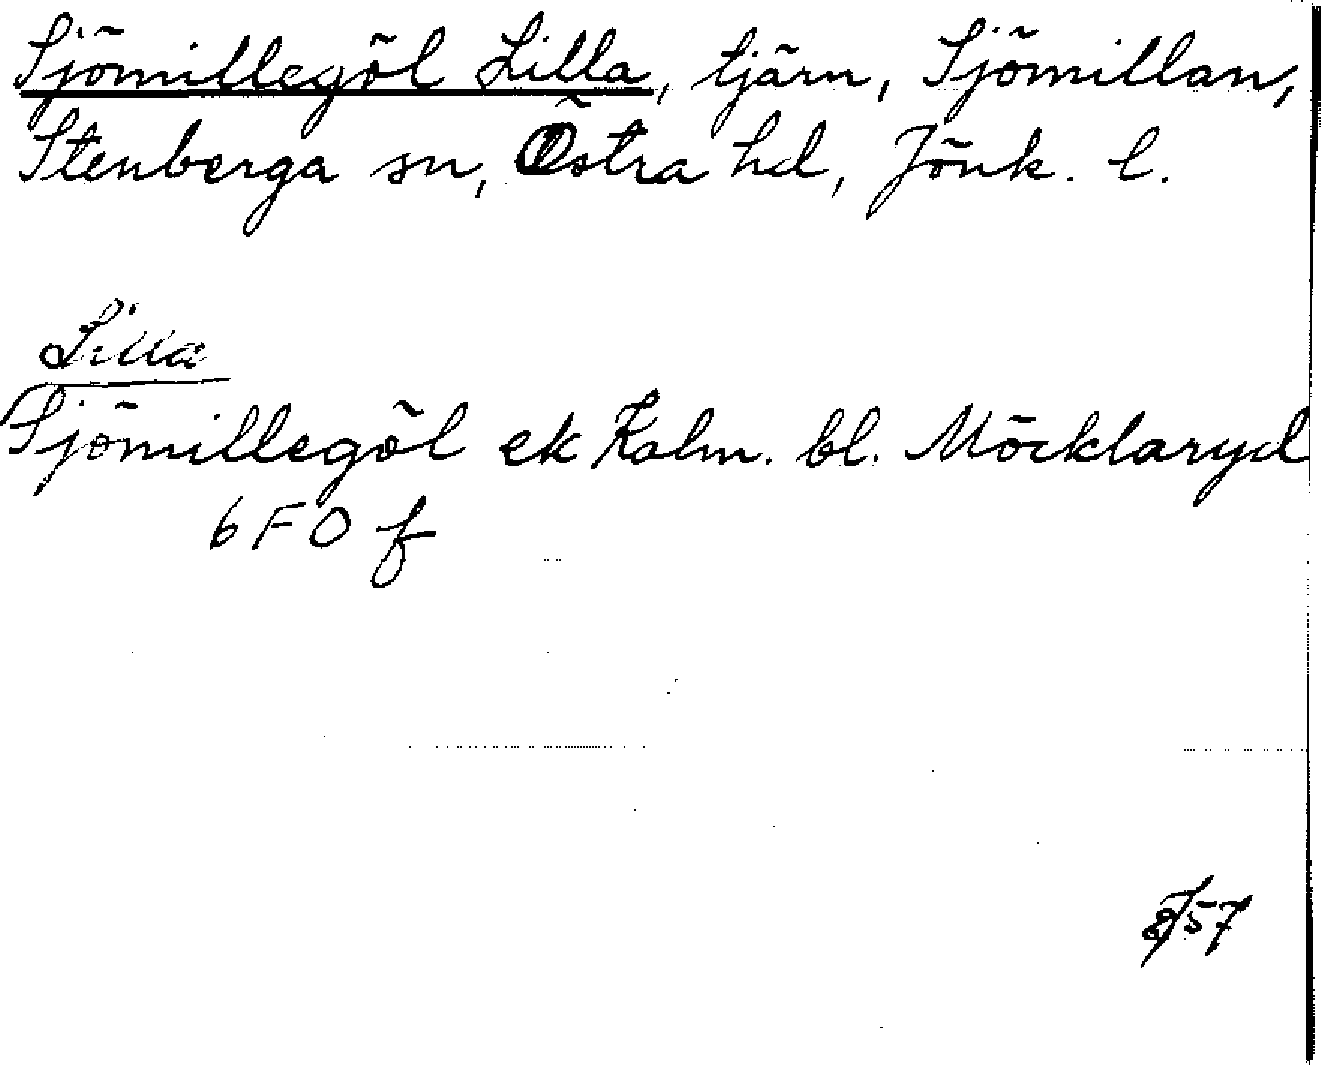 Sjömillegöl Lilla, tjärn, Sjömillan,
Stenberga sn, Östra hd, Jönk. l.
Lilla
Sjömillegöl ek Kalm. bl. Möcklaryd
6 F O f
57